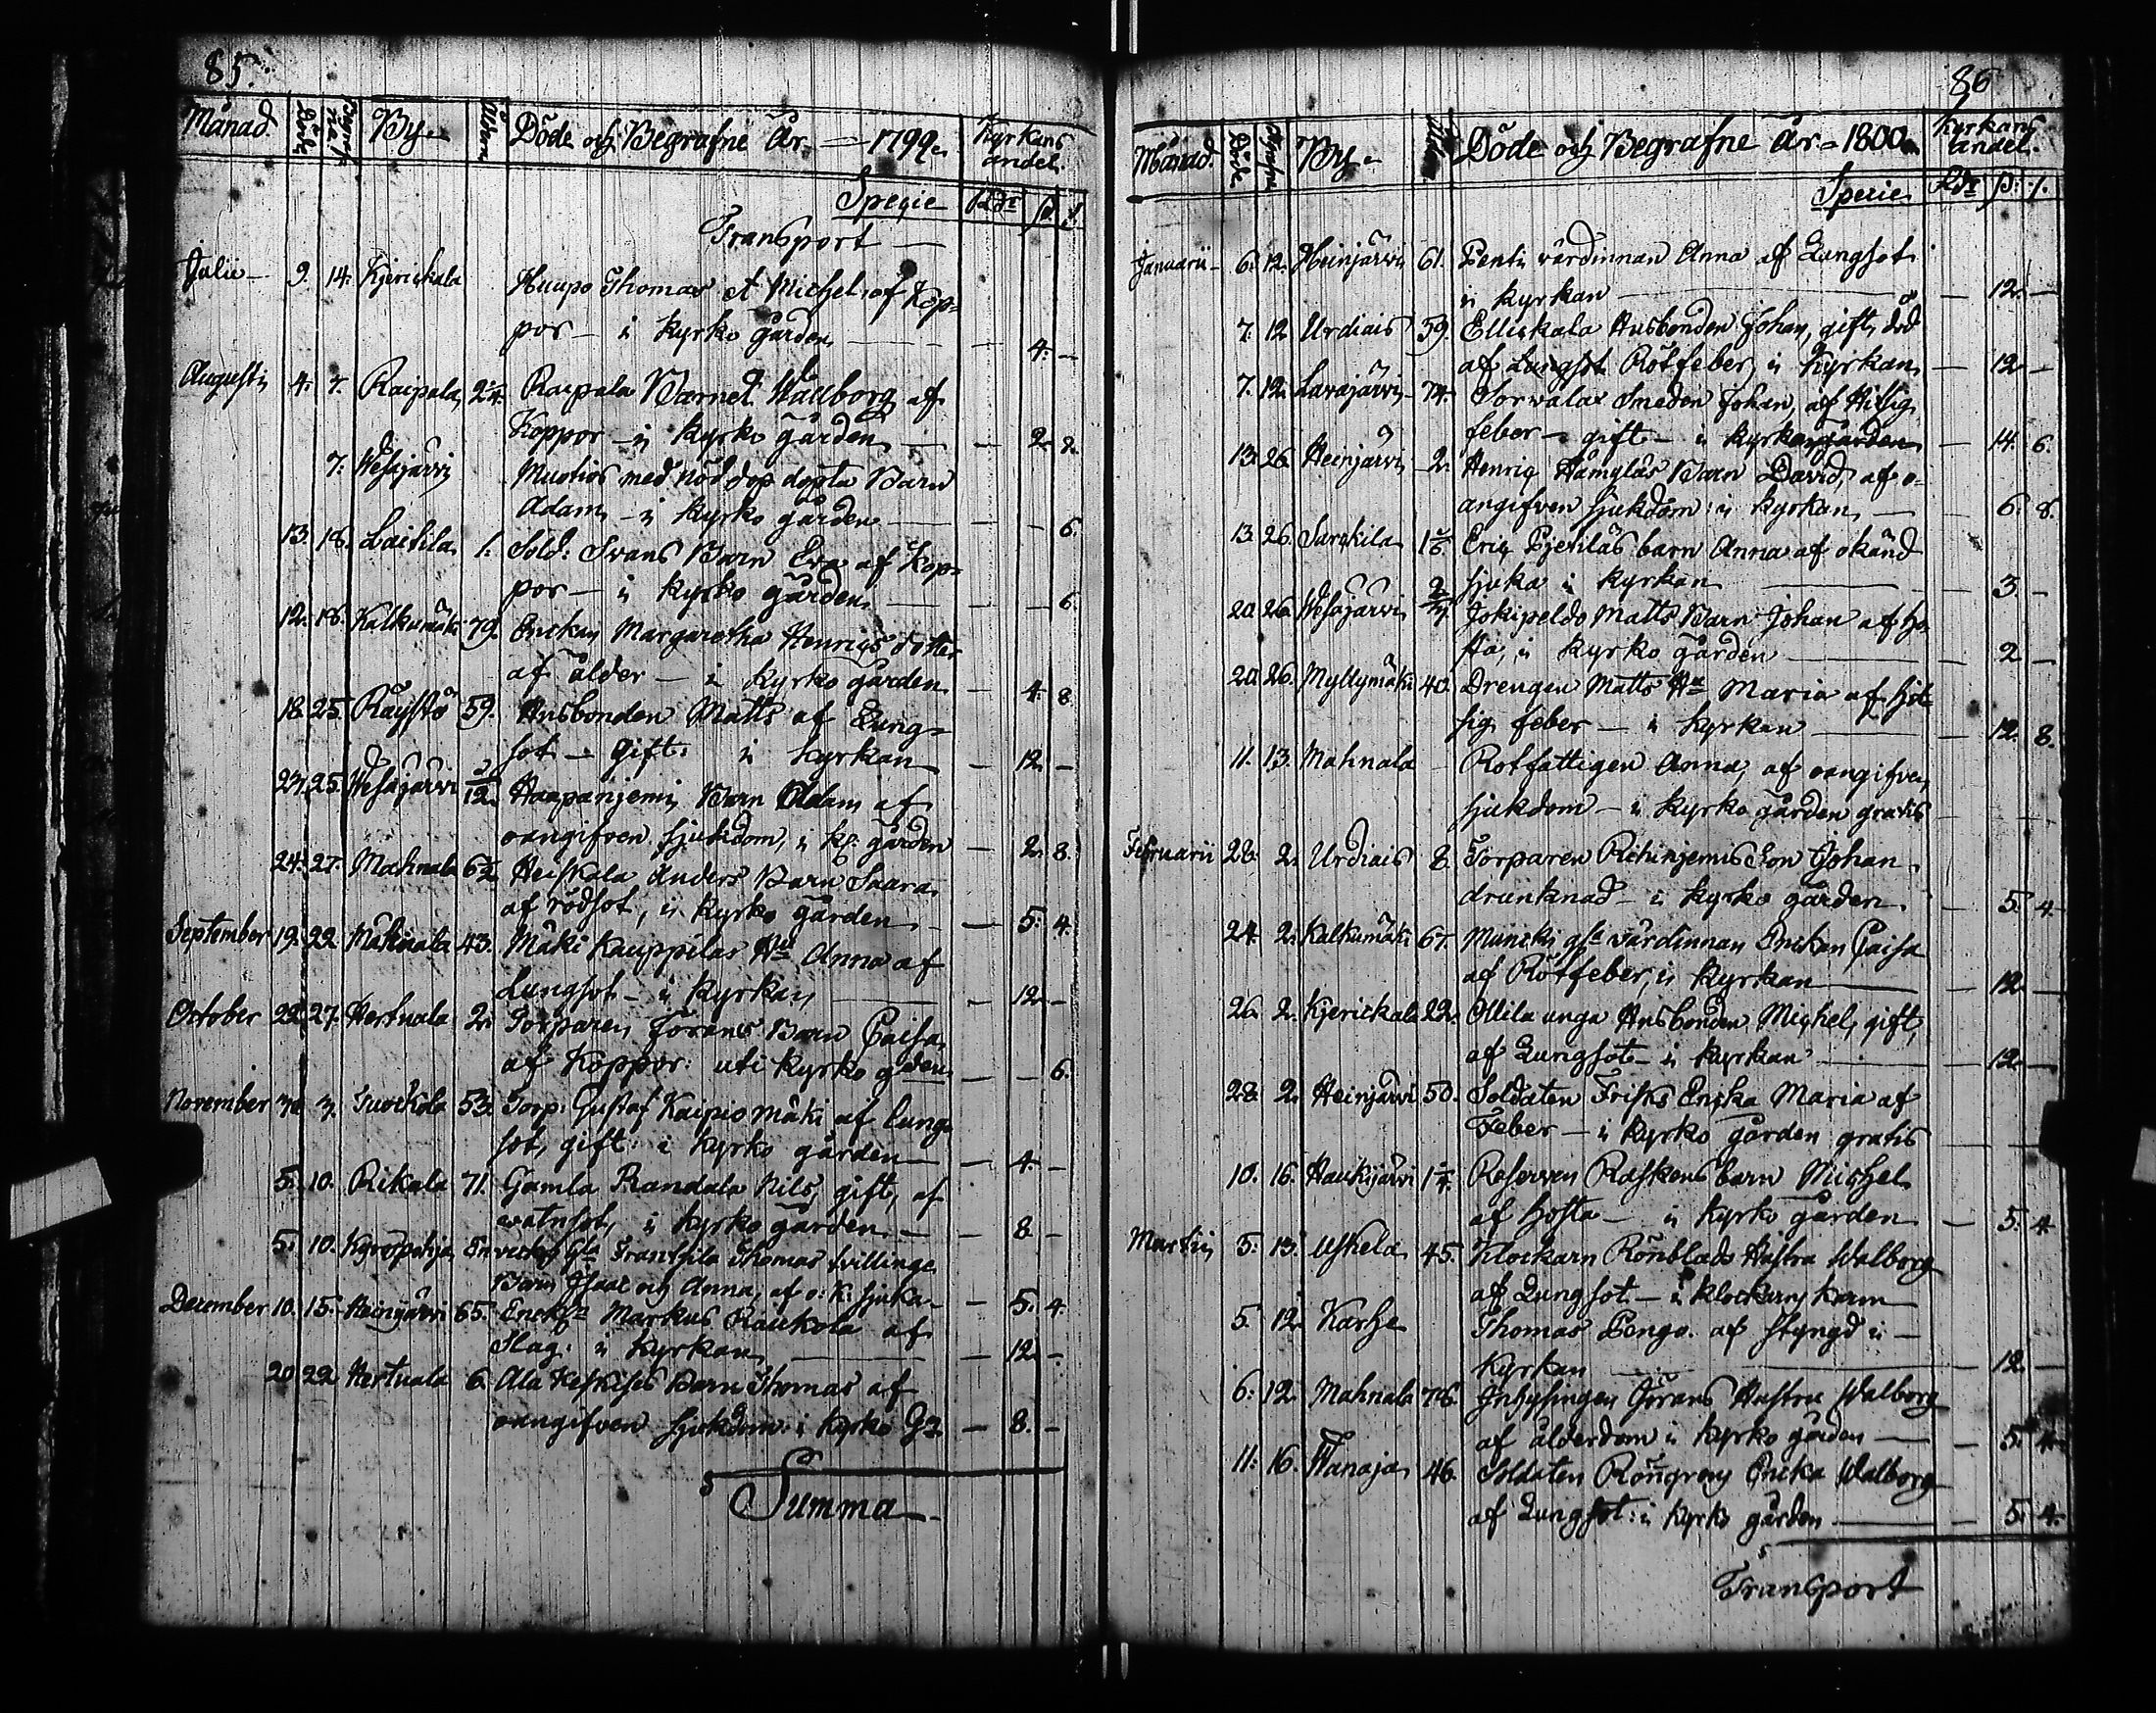 85.
Månad. Döde Begrafne By Åldren Döde och Begrafne År 1799. Kyrkans andel.
Specie Rdr ß. r.
Transport
Julii 9. 14. Kjerickala Huupo Thomas st Michel af Kop=
por i kyrko gården 4.
Augusti 4. 7. Raipala Raipala Barnet Wallborg af
Koppor i kyrko gården 2. 2.
7. Wesajärvi Muotios med nöd dop döpta Barn
Adam i kyrko gården 6.
13. 18. Laitila 1. Sold: Svans Barn Eva af Kop=
por i kyrko gården 6.
12. 18. Kalkumäki 79. Enckan Margaretha Henrics dotter
af ålder i kyrko gården 4. 8.
18. 25. Räystö 59. Husbonden Matts af Lung=
sot gift i kyrkan 12.
23. 25. Wesajärvi Haapanjemi Barn Adam af
oangifven sjukdom, i k: gården 2. 8.
24. 27. Mahnala 6½ Heiskala Anders Barn Saara
af rödsot, i kyrko gården 5. 4.
September 19. 22. Mahnala 43. Mäki Kauppilas Hu Anna af
Lungsot i kyrkan 12.
October 22. 27. Hertuala 2. Torparen Barn Caisa
af Koppor uti kyrko gden 6.
November 3. Tuockola 53. Torp: Gustaf Kaipio mäki af lung
sot, gift i kyrko gården 4.
5. 10. Rikala 71. Gamla Randala Nils, gift, af
watusot, i kyrko gården 8.
5. 10. Kyröspohja Frantsila Thomas tvillinge
Barn Isaac och Anna, af o: k: sjuka 5. 4.
December 10. 15. Heinjärvi 65. Markus Raukola af
Slag i kyrkan 12.
20. 22. Hertuala 6. Ala Keskises Barn Thomas af
oangifven sjukdom i kyrko 8.
Summa
86
Månad. Döde Begrafne By Åldren Döde och Begrafne År 1800. Kyrkans andel.
Specie Rdr ß. r.
Januarii 6. 12. Heinjärvi 61. Penti värdinnan Anna af Lungsot
i kyrkan 12.
7. 12. Urdiais 59. Ellickala Husbonden Johan, gift, död
af Lungsot Rötfeber, i Kyrkan 12
7. 12. Lavajärvi 74. Sorvalax Smeden Johan, af Hitsig
feber gift i kyrkogården 14. 6.
13. 26. Heinjärvi 2. Henric Hämyläs Barn David, af o=
angifven sjukdom i kyrkan 6. 8.
13. 26. Sarckila Eric Pjetiläs barn Anna af okänd
sjuka i kyrkan 3.
20. 26. Wesajärvi Jokipeldo Matts Barn Johan af ho
sta, i kyrko gården 2
20. 26. Myllymäki 40. Drengen Matts Hu Maria af hit
sig feber i kyrkan 12. 8.
11. 13. Mahnala Rotfattigen Anna, af oangifven
sjukdom i kyrko gården gratis
Februarii 23. 2. Urdiais 8. Torparen Rihinjemis Son Johan
drunknad i kyrko gården 5. 4.
24. 2. Kalkumäki 67. värdinnan Enckan Caisa
af Rötfeber, i kyrkan 12
26. 2. Kjerickala 22. Ollila unga Husbonden Michel, gift,
af Lungsot i kyrkan 12.
28. 2. Heinjärvi 50. Soldaten Frisks Encka Maria af
Feber i kyrko gården gratis
10. 16. Haukijärvi Reserven Raskens barn Michel
af hosta i kyrko gården 5. 4
Martii 5. 13. Uskela 45. Klockarn Rönblads Hustru Walborg
af Lungsot i klockarns
5. 12. Karhe Thomas Pengo. af styngd i
kyrkan 12.
6. 12. Mahnala 76. Inhysingen Görans Hustru Walborg
af ålderdom i kyrko gården 5. 4.
11. 16. Wanaja 46. Soldaten Röngrens Encka Walborg
af Lungsot i kyrko gården 5. 4.
Transport